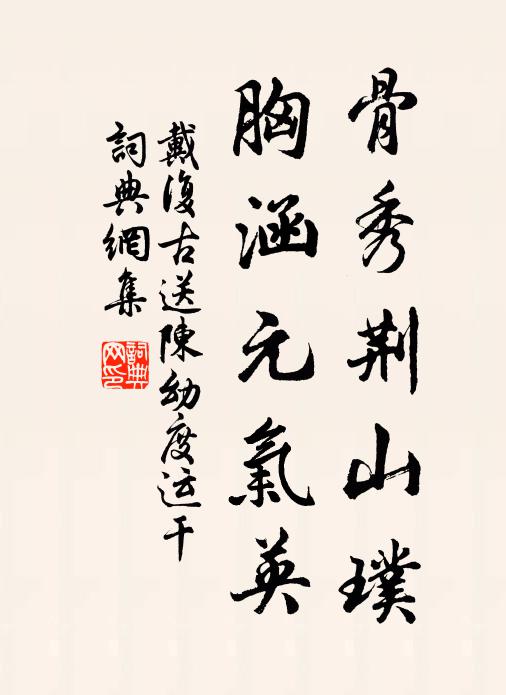 骨秀荆山璞
胸涵元氣英
戴復古送陳幼度运干
詞典網集
詞典网印